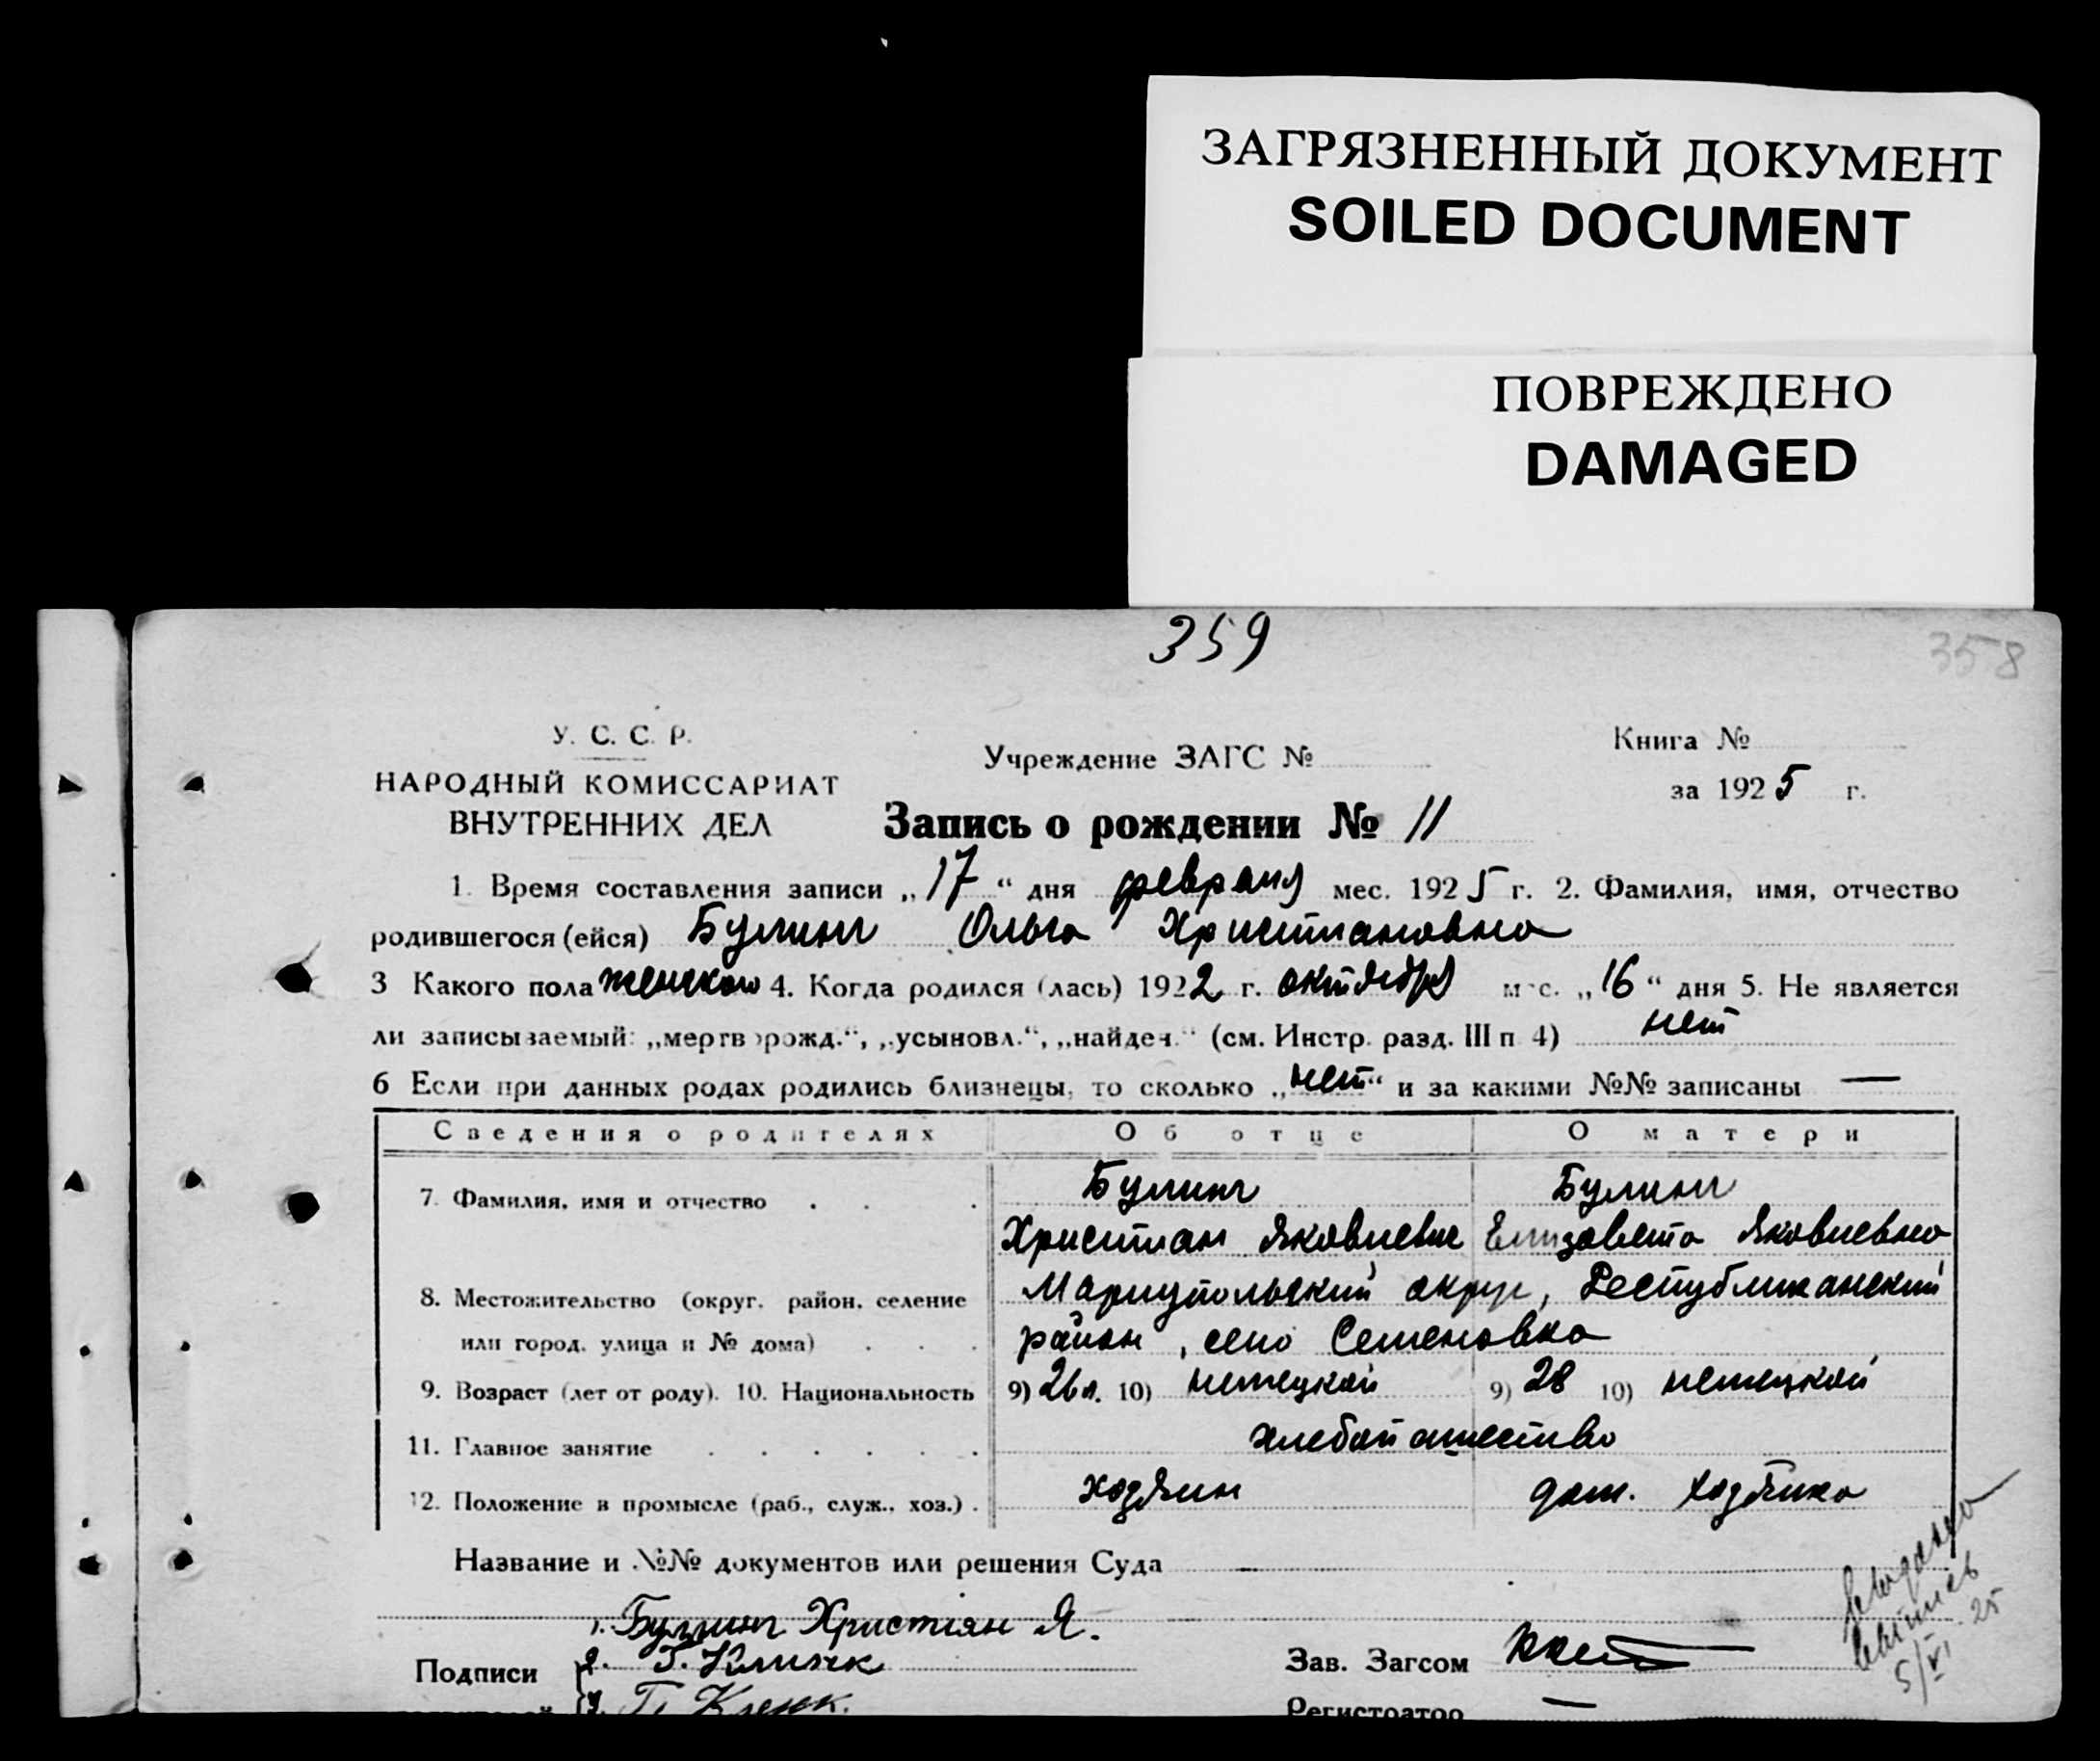 ЗАГРЯЗНЕННЫЙ ДОКУМЕНТ
SOILED DOCUMENT
ПОВРЕЖДЕНО
DAMAGED
359
358
У. С. С. Р.
НАРОДНЫЙ КОМИССАРИАТ
ВНУТРЕННИХ ДЕЛ
Учреждение ЗАГС №
Книга №
за 1925 г.
Запись о рождении № 11
1. Время составления записи „17“ дня февраля мес. 1925 г. 2. Фамилия, имя, отчество
родившегося (ейся) Булинг Ольга Християновна
3 Какого пола женского 4. Когда родился (лась) 1922 г. октября мес. „16“ дня 5. Не является
ли записываемый: „мертворожд.“, „усыновл.“, „найден.“ (см. Инстр. разд. III п. 4) нет
6 Если при данных родах родились близнецы, то сколько „нет“ и за какими №№ записаны —
Сведения о родителях Об отце О матери
7. Фамилия, имя и отчество Булинг Булинг
Християн Яковлевич Елизавета Яковлевна
8. Местожительство (округ, район, селение Мариупольский округ, Республиканский
или город, улица и № дома) район, село Семеновка
9. Возраст (лет от роду). 10. Национальность 9) 26 л. 10) немецкой 9) 28 10) немецкой
11. Главное занятие хлебопашество
12. Положение в промысле (раб., служ., хоз.) хозяин дом. хозяйка
Название и №№ документов или решения Суда —
1. Булинг Християн Я.
Подписи 2. Г.
3. Кленк.
Зав. Загсом
Регистратор —
5/VI 25